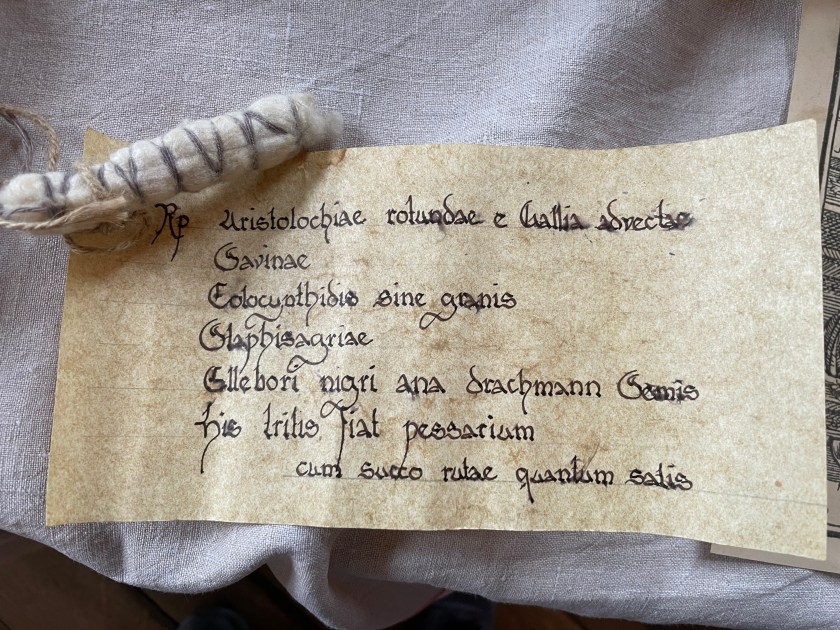 Rp Aristolochiae rotundae e Gallia advectae
Savinae
Colocynthidis sine granis
Staphisagriae
Ellebori nigri ana drachmann Semis
his tritis fiat pessarium
cum succo rutae quantum satis